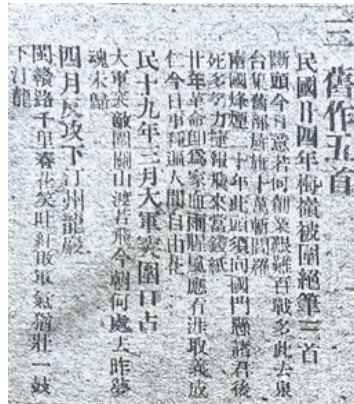 三 舊作五首
民國廿四年梅嶺被圍絕筆三首
斷頭今日意若何創業艱難百戰多此去泉
台集舊部旌旗十萬斬閻羅
南國烽煙二十年此頭須向國門懸諸君後
死多努力捷報飛來當錢紙
廿年革命即爲家血雨腥風應有涯取義成
仁今日事種遍人間自由花
民十九年三月大軍突圍口占
大軍突敵圍關山渡若飛今朝何處去昨夢
魂未歸
四月反攻下汀州龍巖
閩贛路千里春花笑吐紅敗軍氣猶壯一鼓
下汀龍